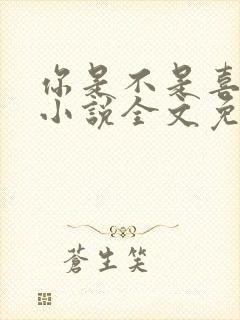 你是不是喜
小說全文免
蒼生笑